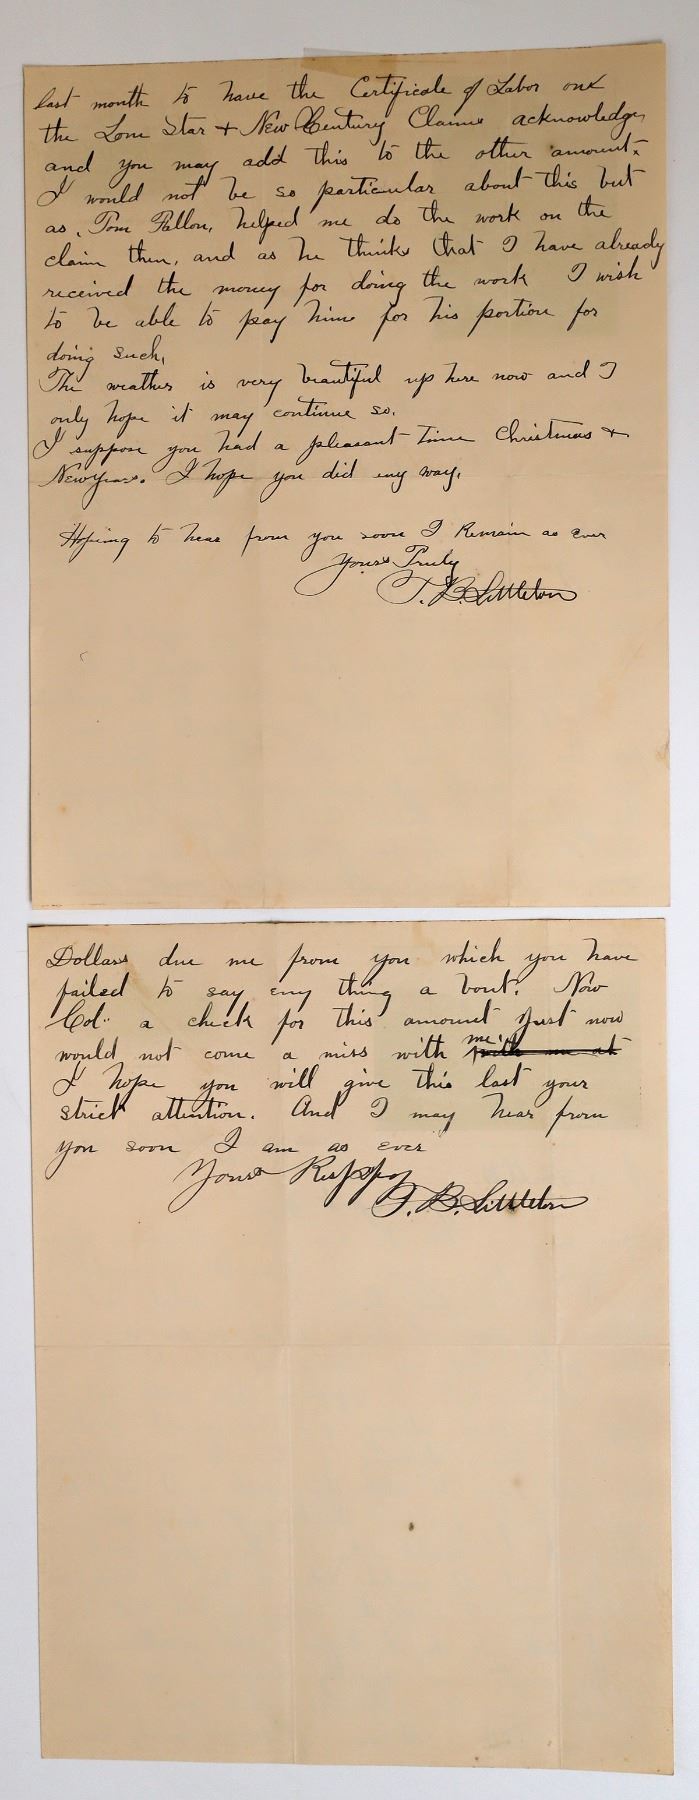 last month to have the Certificate of Labor on
the Lone Star + New Century Claims acknowledge,
and you may add this to the other amount.
I would not be so particular about this but
as, Tom Fallon, helped me do the work on the
claim then, and as he thinks that I have already
received the money for doing the work I wish
to be able to pay him for his portion for
doing such,
The weather is very beautiful up here now and I
only hope it may continue so.
I suppose you had a pleasant time Christmas +
New Years. I hope you did eny way.
Hoping to hear from you soon I Remain as ever
Yours Truly
T. B. Littleton
Dollars due me from you which you have
failed to say eny thing a bout. Now
Col. a check for this amount Just now
would not come a miss with me
I hope you will give this last your
strict attention. And I may hear from
you soon I am as ever
Yours
T. B. Littleton